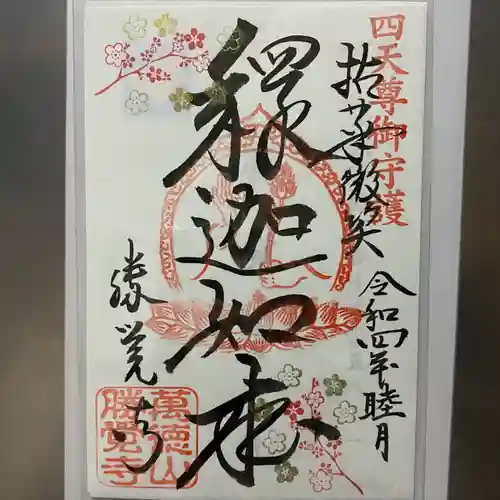 四天尊御守護
拈華微笑
令和四年睦月
釋迦如来
勝覚寺
萬徳山
勝覺寺